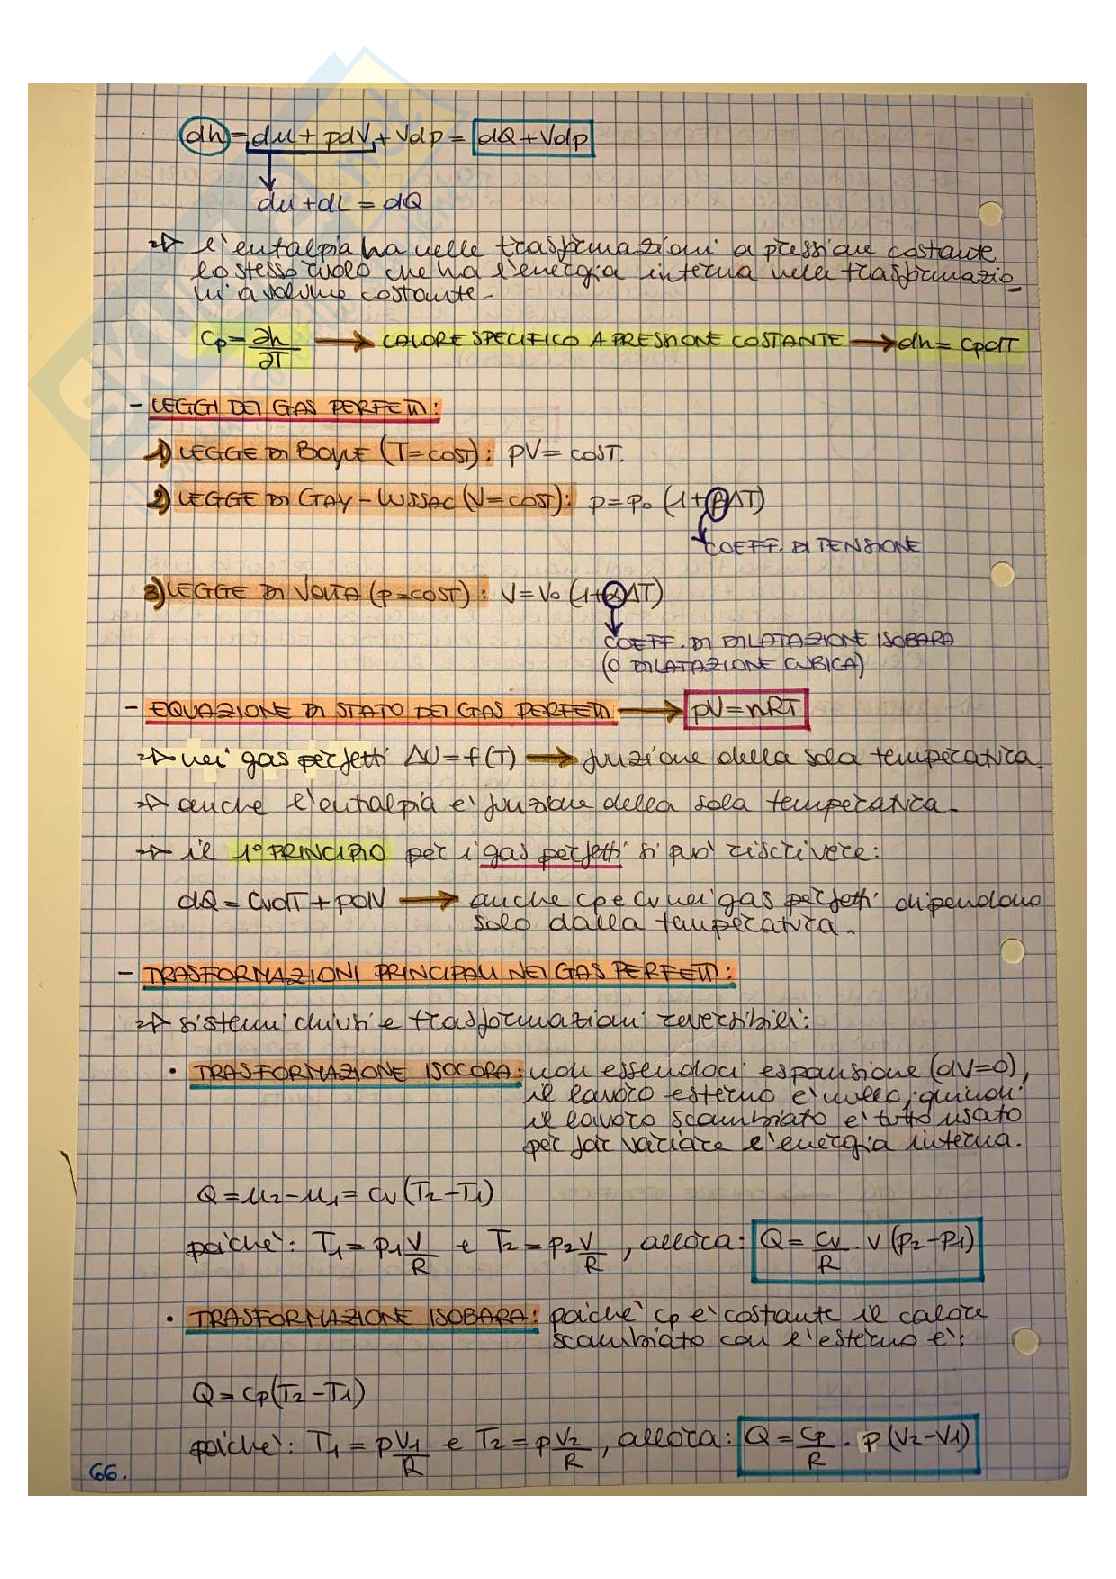 dh = du + pdV + Vdp = dQ + Vdp
du + dL = dQ
→ l'entalpia ha nelle trasformazioni a pressione costante
lo stesso ruolo che ha l'energia interna nelle trasformazio_
ni a volume costante.
Cp = ∂h/∂T → CALORE SPECIFICO A PRESSIONE COSTANTE → dh = CpdT
- LEGGI DEI GAS PERFETTI:
1) LEGGE DI BOYLE (T=COST): pV = COST.
2) LEGGE DI GAY-LUSSAC (V=COST): p = p₀ (1+βΔT)
COEFF. DI TENSIONE
3) LEGGE DI VOLTA (p=COST): V = V₀ (1+αΔT)
COEFF. DI DILATAZIONE ISOBARA
(O DILATAZIONE CUBICA)
- EQUAZIONE DI STATO DEI GAS PERFETTI → pV = nRT
→ nei gas perfetti ΔU = f(T) → funzione della sola temperatura.
→ anche l'entalpia e' funzione della sola temperatura.
→ il 1° PRINCIPIO per i gas perfetti si puo' riscrivere:
dQ = CvdT + pdV → anche cp e cv nei gas perfetti dipendono
solo dalla temperatura.
- TRASFORMAZIONI PRINCIPALI NEI GAS PERFETTI:
→ sistemi chiusi e trasformazioni reversibili:
• TRASFORMAZIONE ISOCORA: non essendoci espansione (dV=0),
il lavoro esterno e' nullo, quindi
il lavoro scambiato e' tutto usato
per far variare l'energia interna.
Q = u₂ - u₁ = cv (T₂ - T₁)
poiche': T₁ = p₁ V/R e T₂ = p₂ V/R , allora: Q = Cv/R · V (p₂ - p₁)
• TRASFORMAZIONE ISOBARA: poiche' cp e' costante il calore
scambiato con l'esterno e':
Q = Cp (T₂ - T₁)
poiche': T₁ = p V₁/R e T₂ = p V₂/R , allora: Q = Cp/R · p (V₂ - V₁)
66.